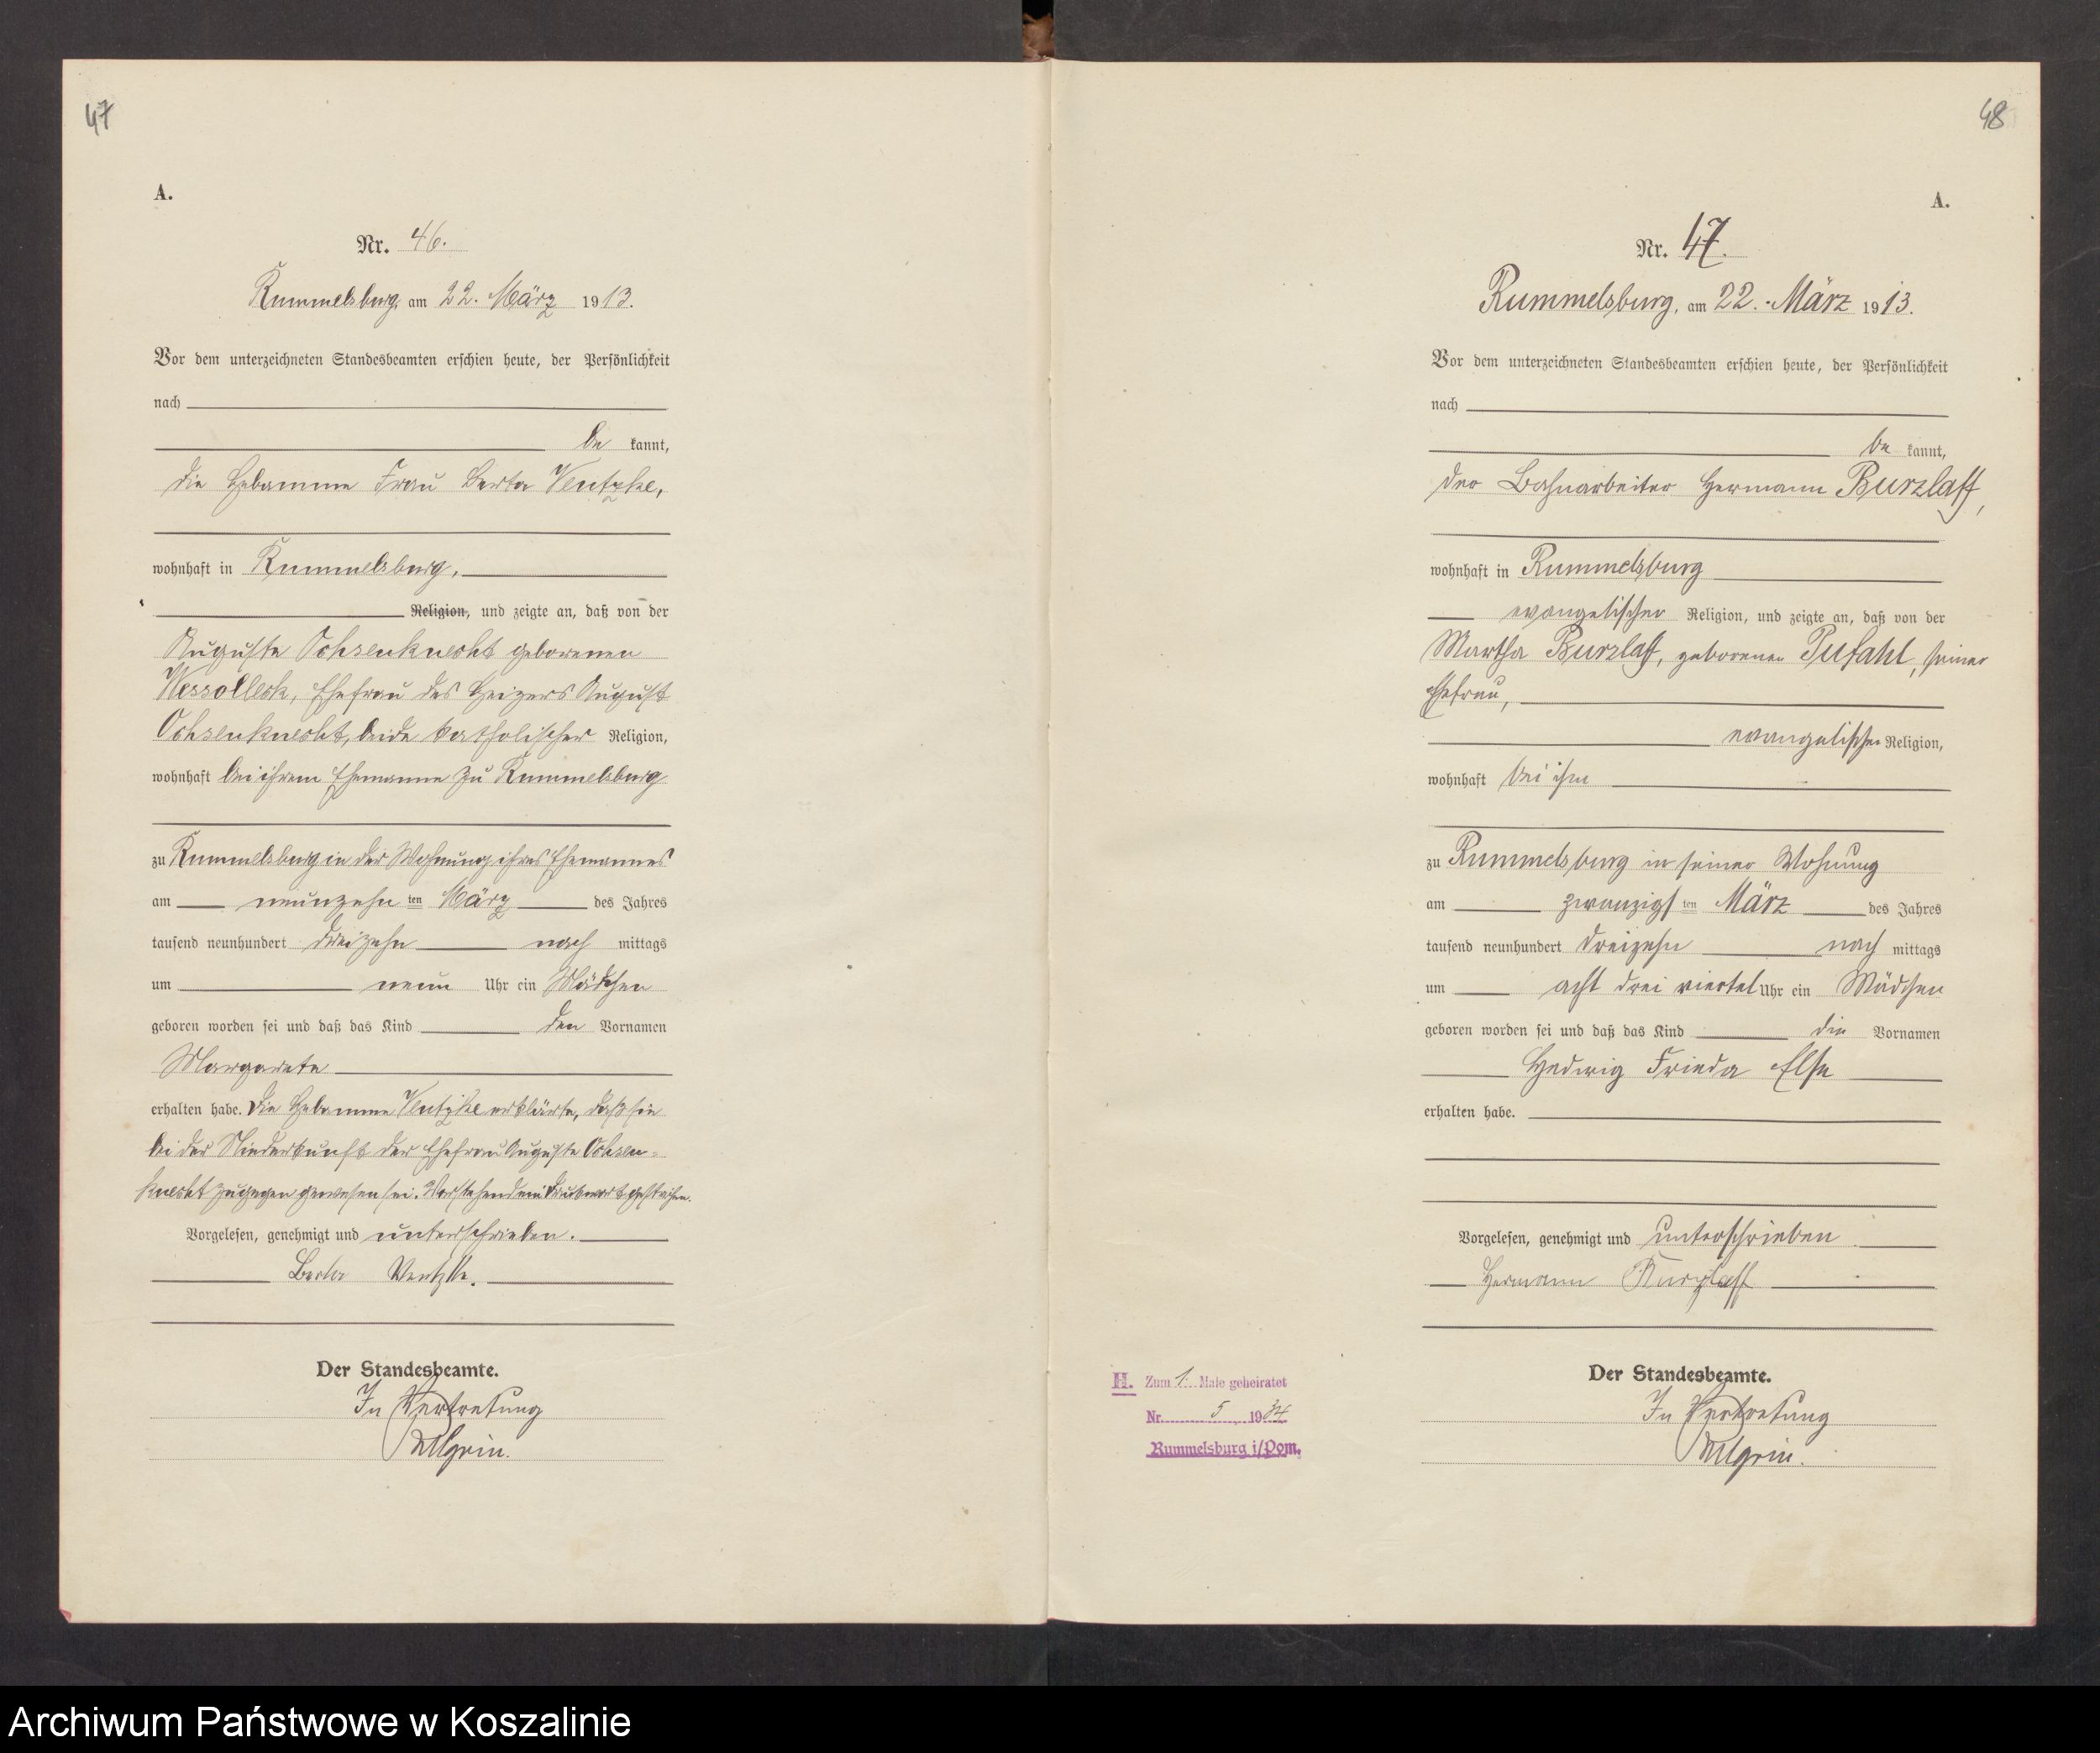 47
A.
Nr. 46.
Rummelsburg, am 22. März 1913.
Vor dem unterzeichneten Standesbeamten erschien heute, der Persönlichkeit
nach
be kannt,
die Hebamme Frau Berta Ventzke,
wohnhaft in Rummelsburg,
Religion, und zeigte an, daß von der
Auguste Ochsenknecht geborenen
Wessolleck, Ehefrau des Heizers August
Ochsenknecht, beide katholischer Religion,
wohnhaft bei ihrem Ehemanne zu Rummelsburg
zu Rummelsburg in der Wohnung ihres Ehemannes
am neunzehn ten März des Jahres
tausend neunhundert dreizehn nach mittags
um neun Uhr ein Mädchen
geboren worden sei und daß das Kind den Vornamen
Margarete
erhalten habe. Die Hebamme Ventzke erklärte, daß sie
bei der Niederkunft der Ehefrau Auguste Ochsen-
knecht zugegen gewesen sei. Vorstehend ein Druckwort gestrichen.
Vorgelesen, genehmigt und unterschrieben.
Berta Ventzke.
Der Standesbeamte.
In Vertretung
48
A.
Nr. 47.
Rummelsburg, am 22. März 1913.
Vor dem unterzeichneten Standesbeamten erschien heute, der Persönlichkeit
nach
be kannt,
der Bahnarbeiter Hermann Burzlaff,
wohnhaft in Rummelsburg
evangelischer Religion, und zeigte an, daß von der
Martha Burzlaff, geborenen Pufahl, seiner
Ehefrau,
evangelischer Religion,
wohnhaft bei ihm
zu Rummelsburg in seiner Wohnung
am zwanzigs ten März des Jahres
tausend neunhundert dreizehn nach mittags
um acht drei viertel Uhr ein Mädchen
geboren worden sei und daß das Kind die Vornamen
Hedwig Frieda Else
erhalten habe.
Vorgelesen, genehmigt und unterschrieben
Hermann Burzlaff
H. Zum 1. Male geheiratet
Nr. 5 1934
Rummelsburg i/Pom.
Der Standesbeamte.
In Vertretung
Archiwum Państwowe w Koszalinie